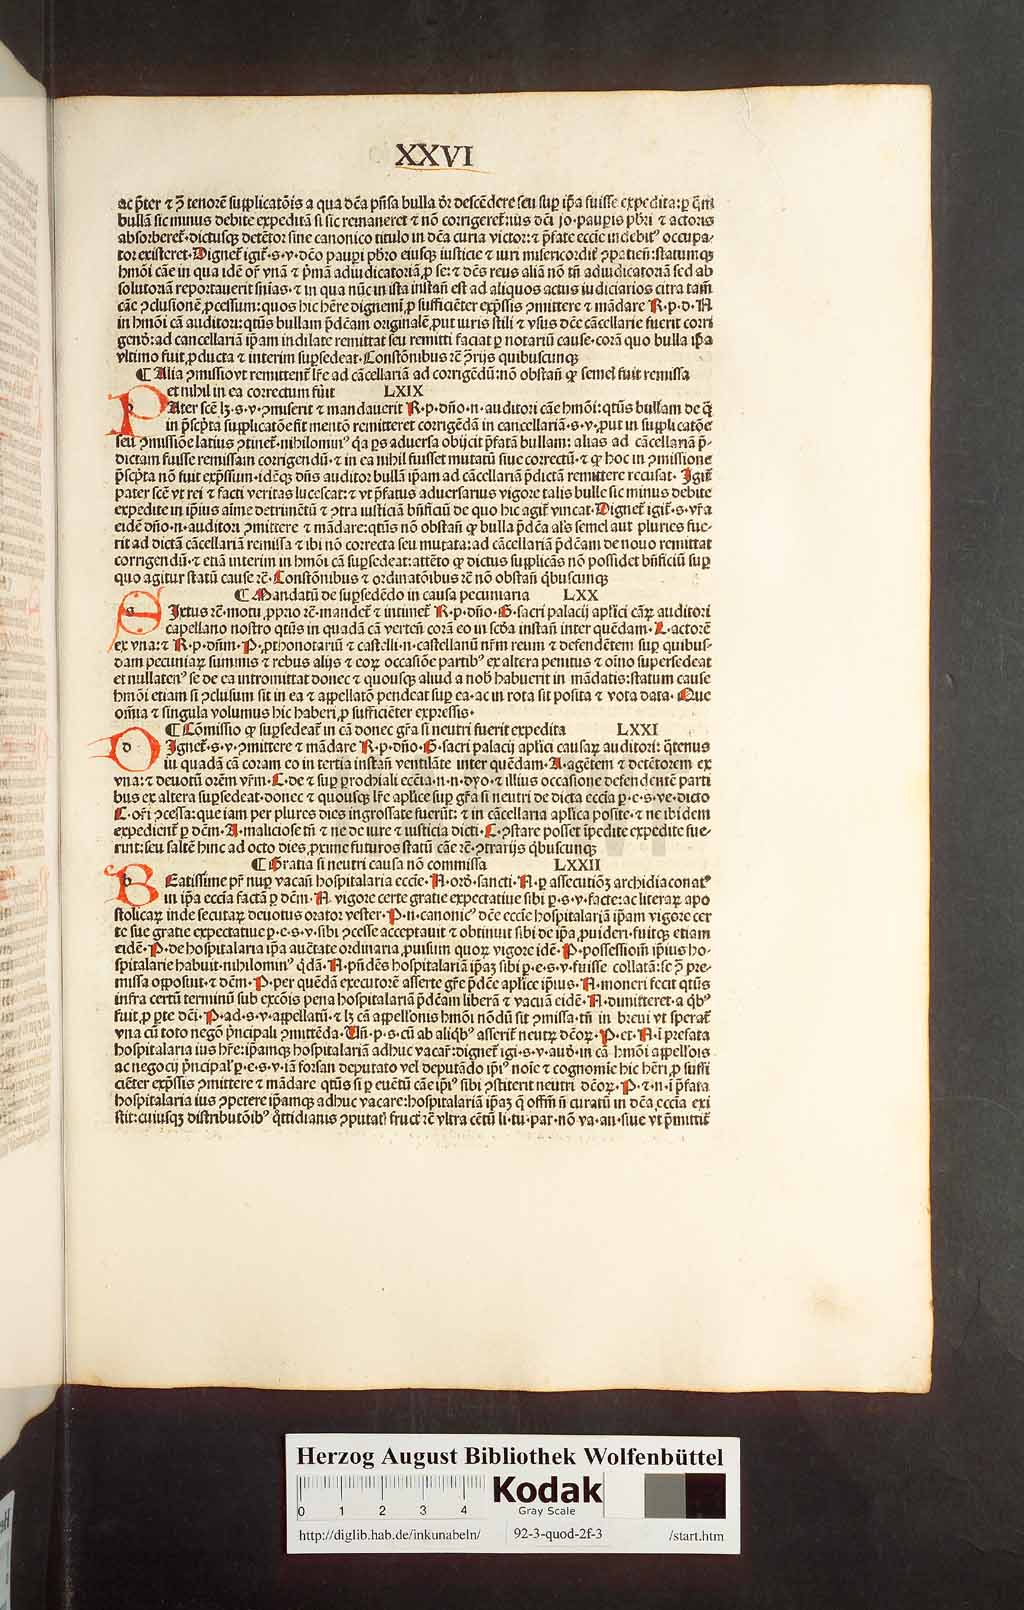 XXVI
ac p̄ter ⁊ ꝯ tenorē supplicatōis a qua dc̄a pn̄sa bulla dr̄ descēdere seu sup ip̄a fuisse expedita: ꝑ
bullā sic minus debite expeditā si sic remaneret ⁊ nō corrigeret᷑: ius dc̄i Jo·pauꝑis pb̄ri ⁊ actoris
absorberet᷑·dictusqꝫ detētor sine canonico titulo in dc̄a curia victor: ⁊ p̄fate ecc̄ie indebitꝰ occupa⸗
tor existeret·Dignet᷑ igit᷑·s·v·dc̄o pauꝑi pb̄ro eiusqꝫ iusticie ⁊ iuri misericordit᷑ ꝯpatien̄: statumqꝫ
hm̄oi cāe in qua idē or̄ vnā ⁊ p̄mā adiudicatoriā, ꝓ se: ⁊ dc̄s reus aliā nō tn̄ adiudicatoriā sed ab
solutoriā reportauerit sn̄ias·⁊ in qua nūc in ista instan̄ est ad aliquos actus iudiciarios citra tam̄
cāe ꝯclusionē ꝓcessum: quos hic hr̄e dignemī ꝓ sufficiēter exp̄ssis ꝯmittere ⁊ mādare R·p·d·N
in hm̄oi cā auditori: qtūs bullam p̄dc̄am originalē, ꝓut iuris stili ⁊ vsus dc̄e cācellarie fuerit corri
gendꝰ: ad cancellariā ip̄am indilate remittat seu remitti faciat ꝑ notariū cause·corā quo bulla ip̄a
vltimo fuit ꝓducta ⁊ interim suꝑsedeat·Constōnibus rē ꝯrijs quibuscunqꝫ
¶ Alia ꝯmissio vt remittent᷑ lr̄e ad cācellariā ad corrigēdū: nō obstan̄ ꝙ semel fuit remissa
et nihil in ea correctum fuit LXIX
PAter scē lꝫ·s·v·ꝯmiserit ⁊ mandauerit R·p·dn̄o·n·auditori cāe hm̄oi: qtūs bullam de q̄
in p̄scp̄ta supplicatōe fit mentō remitteret corrigēdā in cancellariā·s·v·ꝓut in supplicatōe
seu ꝯmissiōe latius ꝯtinet᷑·nihilominꝰ q̄a ps aduersa obijcit p̄fatā bullam: alias ad cācellariā p̄⸗
dictam fuisse remissam corrigendū·⁊ in ea nihil fuisset mutatū siue correctū·⁊ ꝙ hoc in ꝯmissione
p̄scp̄ta nō fuit exp̄ssum·idēqꝫ dn̄s auditor bullā ip̄am ad cācellariā p̄dictā remittere recusat· Igit᷑
pater scē vt rei ⁊ facti veritas lucescat: ⁊ vt p̄fatus aduersarius vigore talis bulle sic minus debite
expedite in ip̄ius aīme detrimētū ⁊ ꝯtra iusticiā bn̄ficiū de quo hic agit᷑ vincat·Dignet᷑ igit᷑·s·vr̄a
eidē dn̄o·n·auditori ꝯmittere ⁊ mādare: qtūs nō obstan̄ ꝙ bulla p̄dc̄a als̄ semel aut pluries fue⸗
rit ad dictā cācellariā remissa ⁊ ibi nō correcta seu mutata: ad cācellariā p̄dc̄am de nouo remittat
corrigendū·⁊ etiā interim in hm̄oi cā suꝑsedeat: attēto ꝙ dictus supplicās nō possidet bn̄ficiū suꝑ
quo agitur statū cause rē·Constōnibus ⁊ ordinatōibus rē nō obstan̄ q̄buscunqꝫ
¶ Mandatū de suꝑsedēdo in causa pecuniaria LXX
SIxtus rē·motu, ꝓprio rē·mandet᷑ ⁊ intimet᷑ R·p·dn̄o·G·sacri palacij apl̄ici cāꝝ auditori
capellano nostro qtūs in quadā cā verten̄ corā eo in scd̄a instan̄ inter quēdam·L·actorē
ex vna: ⁊ R·p·dn̄m·P·ꝓthonotariū ⁊ castelli·n·castellanū nr̄m reum ⁊ defendētem suꝑ quibus⸗
dam pecuniaꝝ summis ⁊ rebus alijs ⁊ eoꝝ occasiōe partibꝰ ex altera penitus ⁊ oīno supersedeat
et nullatenꝰ se de ea intromittat donec ⁊ quousqꝫ aliud a nob̄ habuerit in mādatis: statum cause
hm̄oi etiam si ꝯclusum sit in ea ⁊ appellatō pendeat suꝑ ea·ac in rota sit posita ⁊ vota data· Que
om̄ia ⁊ singula volumus hic haberi ꝓ sufficiēter expressis·
¶ Cōmissio ꝙ suꝑsedeat᷑ in cā donec gr̄a si neutri fuerit expedita LXXI
DIgnet᷑·s·v·ꝯmittere ⁊ mādare R·p·dn̄o·G·sacri palacij apl̄ici causaꝝ auditori: q̄tenus
in quadā cā coram eo in tertia instan̄ ventilāte inter quēdam·A·agētem ⁊ detētorem ex
vna: ⁊ deuotū orēm vr̄m·C·de ⁊ suꝑ ꝑrochiali ecc̄ia·n·n·dyo·⁊ illius occasione defendentē parti
bus ex altera suꝑsedeat·donec ⁊ quousqꝫ lr̄e apl̄ice suꝑ gr̄a si neutri de dicta ecc̄ia ꝑ·e·s·ve·dicto
C·or̄i ꝯcessa: que iam per plures dies ingrossate fuerūt: ⁊ in cācellaria apl̄ica posite·⁊ ne ibidem
expedient᷑ ꝑ dc̄m·A·maliciose tn̄ ⁊ ne de iure ⁊ iusticia dicti·C·ꝯstare posset īpedite expedite fue⸗
rint: seu saltē hinc ad octo dies, ꝓxime futuros statū cāe rē·ꝯtrarijs q̄buscunqꝫ
¶ Gratia si neutri causa nō commissa LXXII
BEatissime pr̄ nuꝑ vacan̄ hospitalaria ecc̄ie·N·ord̄·sancti·N·ꝑ assecutionꝫ archidiaconatꝰ
in ip̄a ecc̄ia factā ꝑ dc̄m·N·vigore certe gratie expectatiue sibi ꝑ·s·v·facte: ac literaꝝ apo
stolicaꝝ inde secutaꝝ deuotus orator vester·P·n·canonicꝰ dc̄e ecc̄ie hospitalariā ip̄am vigore cer
te sue gratie expectatiue ꝑ·e·s·v·sibi ꝯcesse acceptauit ⁊ obtinuit sibi de ip̄a, ꝓuideri: fuitqꝫ etiam
eidē·P·de hospitalaria ip̄a auc̄tate ordinaria, ꝓuisum quoꝝ vigore idē·P·possessiom̄ ip̄ius ho⸗
spitalarie habuit·nihilominꝰ q̄dā·N·pn̄dēs hospitalariā ip̄aꝫ sibi ꝑ·e·s·v·fuisse collatā: se ꝯ pre⸗
missa opposuit·⁊ dc̄m·P·per quēdā executorē asserte gr̄e p̄dc̄e apl̄ice ip̄ius·N·moneri fecit qtūs
infra certū terminū sub excōis pena hospitalariā p̄dc̄am liberā ⁊ vacuā eidē·N·dimitteret·a q̄bꝰ
fuit, ꝓ ꝑte dc̄i·P·ad·s·v·appellatū·⁊ lꝫ cā appell̄onis hm̄oi nōdū sit ꝯmissa·tn̄ in breui vt sperat᷑
vna cū toto nego p̄ncipali ꝯmittēda·Un̄·p·s·cū ab aliq̄bꝰ asserit᷑ neutꝝ dc̄oꝝ·P·et·N·ī prefata
hospitalaria ius hr̄e: ip̄amqꝫ hospitalariā adhuc vacar̄: dignet᷑ igi·s·v·aud̄·in cā hm̄oi appell̄ois·
ac negocij p̄ncipal̓ ꝑ·e·s·v·iā forsan deputato vel deputādo ip̄iꝰ noīe ⁊ cognomīe hic hēri, ꝓ suffi
ciēter exp̄ssis ꝯmittere ⁊ mādare qtūs si ꝑ euētū cāe ip̄iꝰ sibi ꝯstiterit neutri dc̄oꝝ·P·⁊·n·ī p̄fata
hospitalaria ius ꝯpetere ip̄amqꝫ adhuc vacare: hospitalariā ip̄aꝫ q̄ offm̄ n̄ curatū in dc̄a ecc̄ia exi
stit: cuiusqꝫ distributōibꝰ q̄ttidianis ꝯputatꝭ fructꝰ rē vltra cētū li·tu·par·nō va·an·siue vt p̄mittit᷑
Herzog August Bibliothek Wolfenbüttel
0 1 2 3 4
Kodak
Gray Scale
http://diglib.hab.de/inkunabeln/ 92-3-quod-2f-3 /start.htm